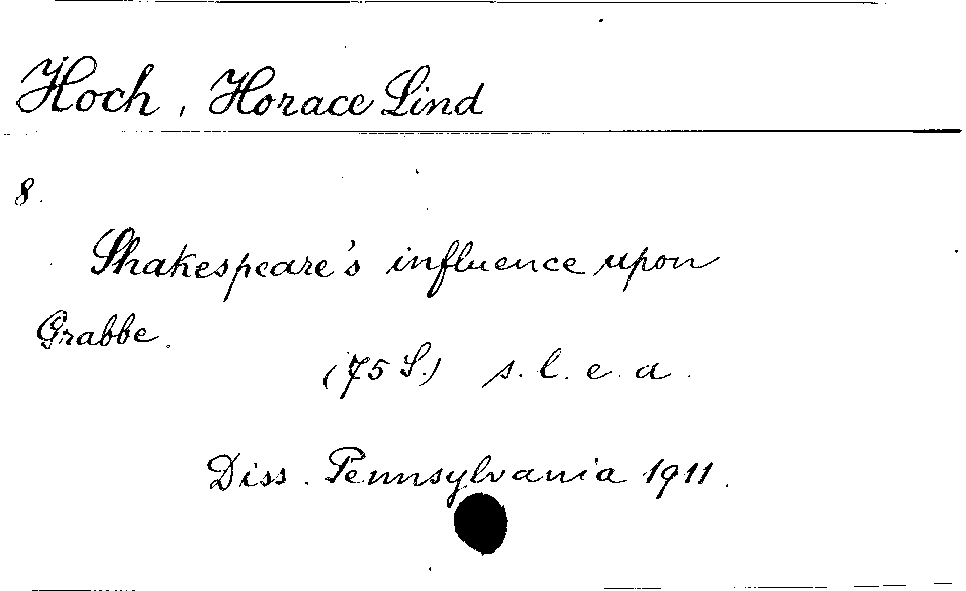 Hoch, Horace Lind
8.
Shakespeare's influence upon
Grabbe.
(75 S.) s. l. e. a.
Diss. Pennsylvania 1911.